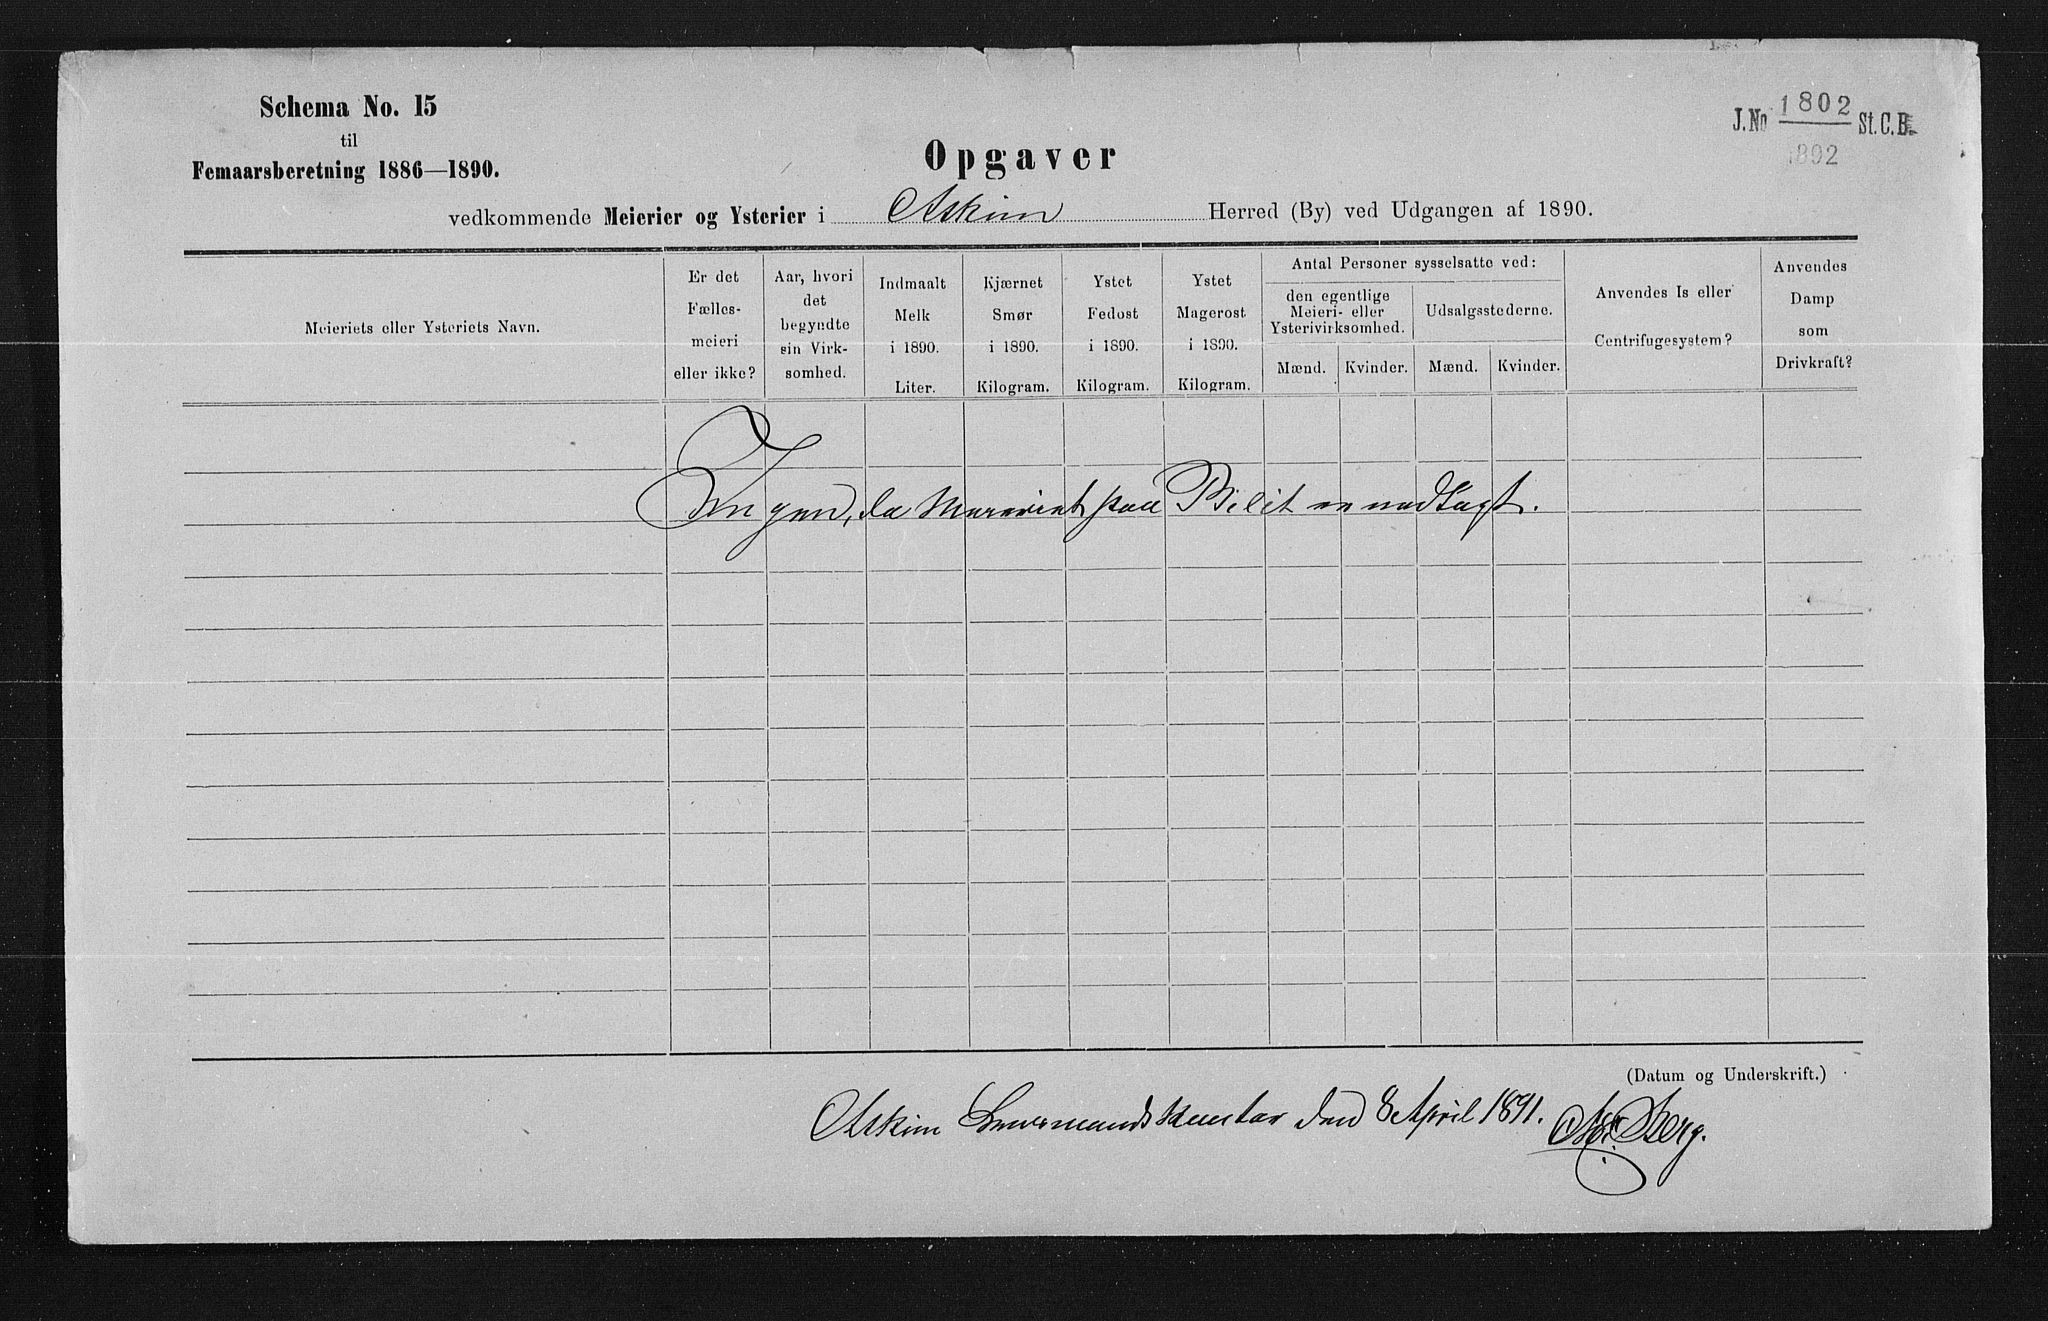 Schema No. 15
til
Femaarsberetning 1886—1890.
J.No 1802 St.C.B.
1892
Opgaver
vedkommende Meierier og Ysterier i Askim Herred (By) ved Udgangen af 1890.
Meieriets eller Ysteriets Navn.
Er det
Fælles-
meieri
eller ikke?
Aar, hvori
det
begyndte
sin Virk-
somhed.
Indmaalt
Melk
i 1890.
Liter.
Kjærnet
Smør
i 1890.
Kilogram.
Ystet
Fedost
i 1890.
Kilogram.
Ystet
Magerost
i 1890.
Kilogram.
Antal Personer sysselsatte ved:
den egentlige
Meieri- eller
Ysterivirksomhed.
Mænd. Kvinder.
Udsalgsstederne.
Mænd. Kvinder.
Anvendes Is eller
Centrifugesystem?
Anvendes
Damp
som
Drivkraft?
Ingen, da Meieriet paa er nedlagt.
(Datum og Underskrift.)
Askim Lensmandskontor den 8 April 1891. Berg.